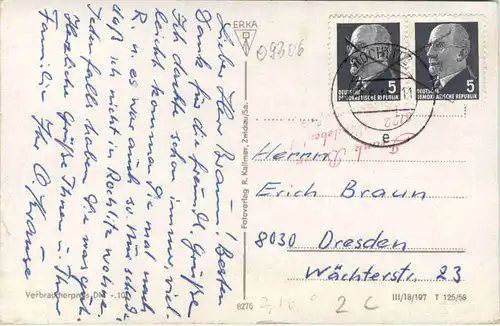 Lieber Herr Braun! Besten
Dank für die freundl. Grüße
Ich dachte schon immer, viel-
leicht kommen Sie mal nach
R. u. es war auch so. Nur schade
daß ich nicht in Rochlitz wohne.
Jedenfalls haben Sie was gesh.
Herzliche Grüße Ihnen u. Ihrer
Familie Ihr O. Krause
Verbraucherpreis DM -,10
ERKA
Fotoverlag R. Kallmer, Zwickau/Sa.
8276
09306
ROCHLITZ
e
DEUTSCHE
DEMOKRATISCHE REPUBLIK
5
DEUTSCHE
DEMOKRATISCHE REPUBLIK
5
Herrn
Erich Braun
8030 Dresden
Wächterstr. 23
2 C
III/18/197 T 125/58